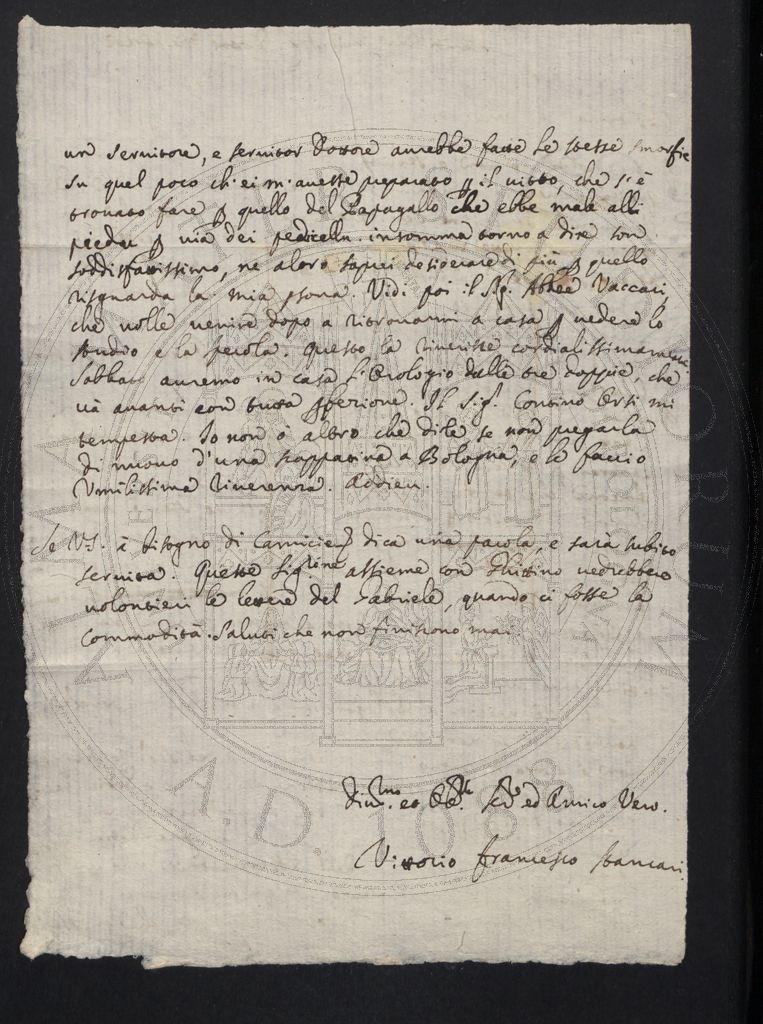 un servitore, e servitor Dottore avrebbe fatte le stesse smorfie
su quel poco ch'ei m'avesse preparato p il vitto, che s'è
trovato fare p quello del Papagallo che ebbe male alli
piedi p via dei pedicelli. insomma torno a dire son
soddisfatissimo, ne altro saprei desiderare di più p quello
risguarda la mia psona. Vidi poi il Sig. Abbate Vaccari,
che volle venire dopo a ritrovarmi a casa p vedere lo
studio e la specola. questo la riverisce cordialissimamente.
Sabbato avremo in casa l'Orologio dalle tre coppie, che
và avanti con tutta pfezione. Il Sig. Contino Orsi mi
tempesta. Io non ò altro che dirle se non pregarla
di nuovo d'una scappatina a Bologna, e le faccio
Umilissima riverenza. Addieu.
Se V.S. à bisogno di Camicie dica una parola, e sarà subito
servita. Queste Sig.rine assieme con vedrebbero
volontieri le lettere del Gabriele, quando ci fosse la
commodità. Saluti che non finiscono mai.
Div.mo et Obb. Se.re ed Amico Vero.
Vittorio Francesco Stancari.
A.D. 1088